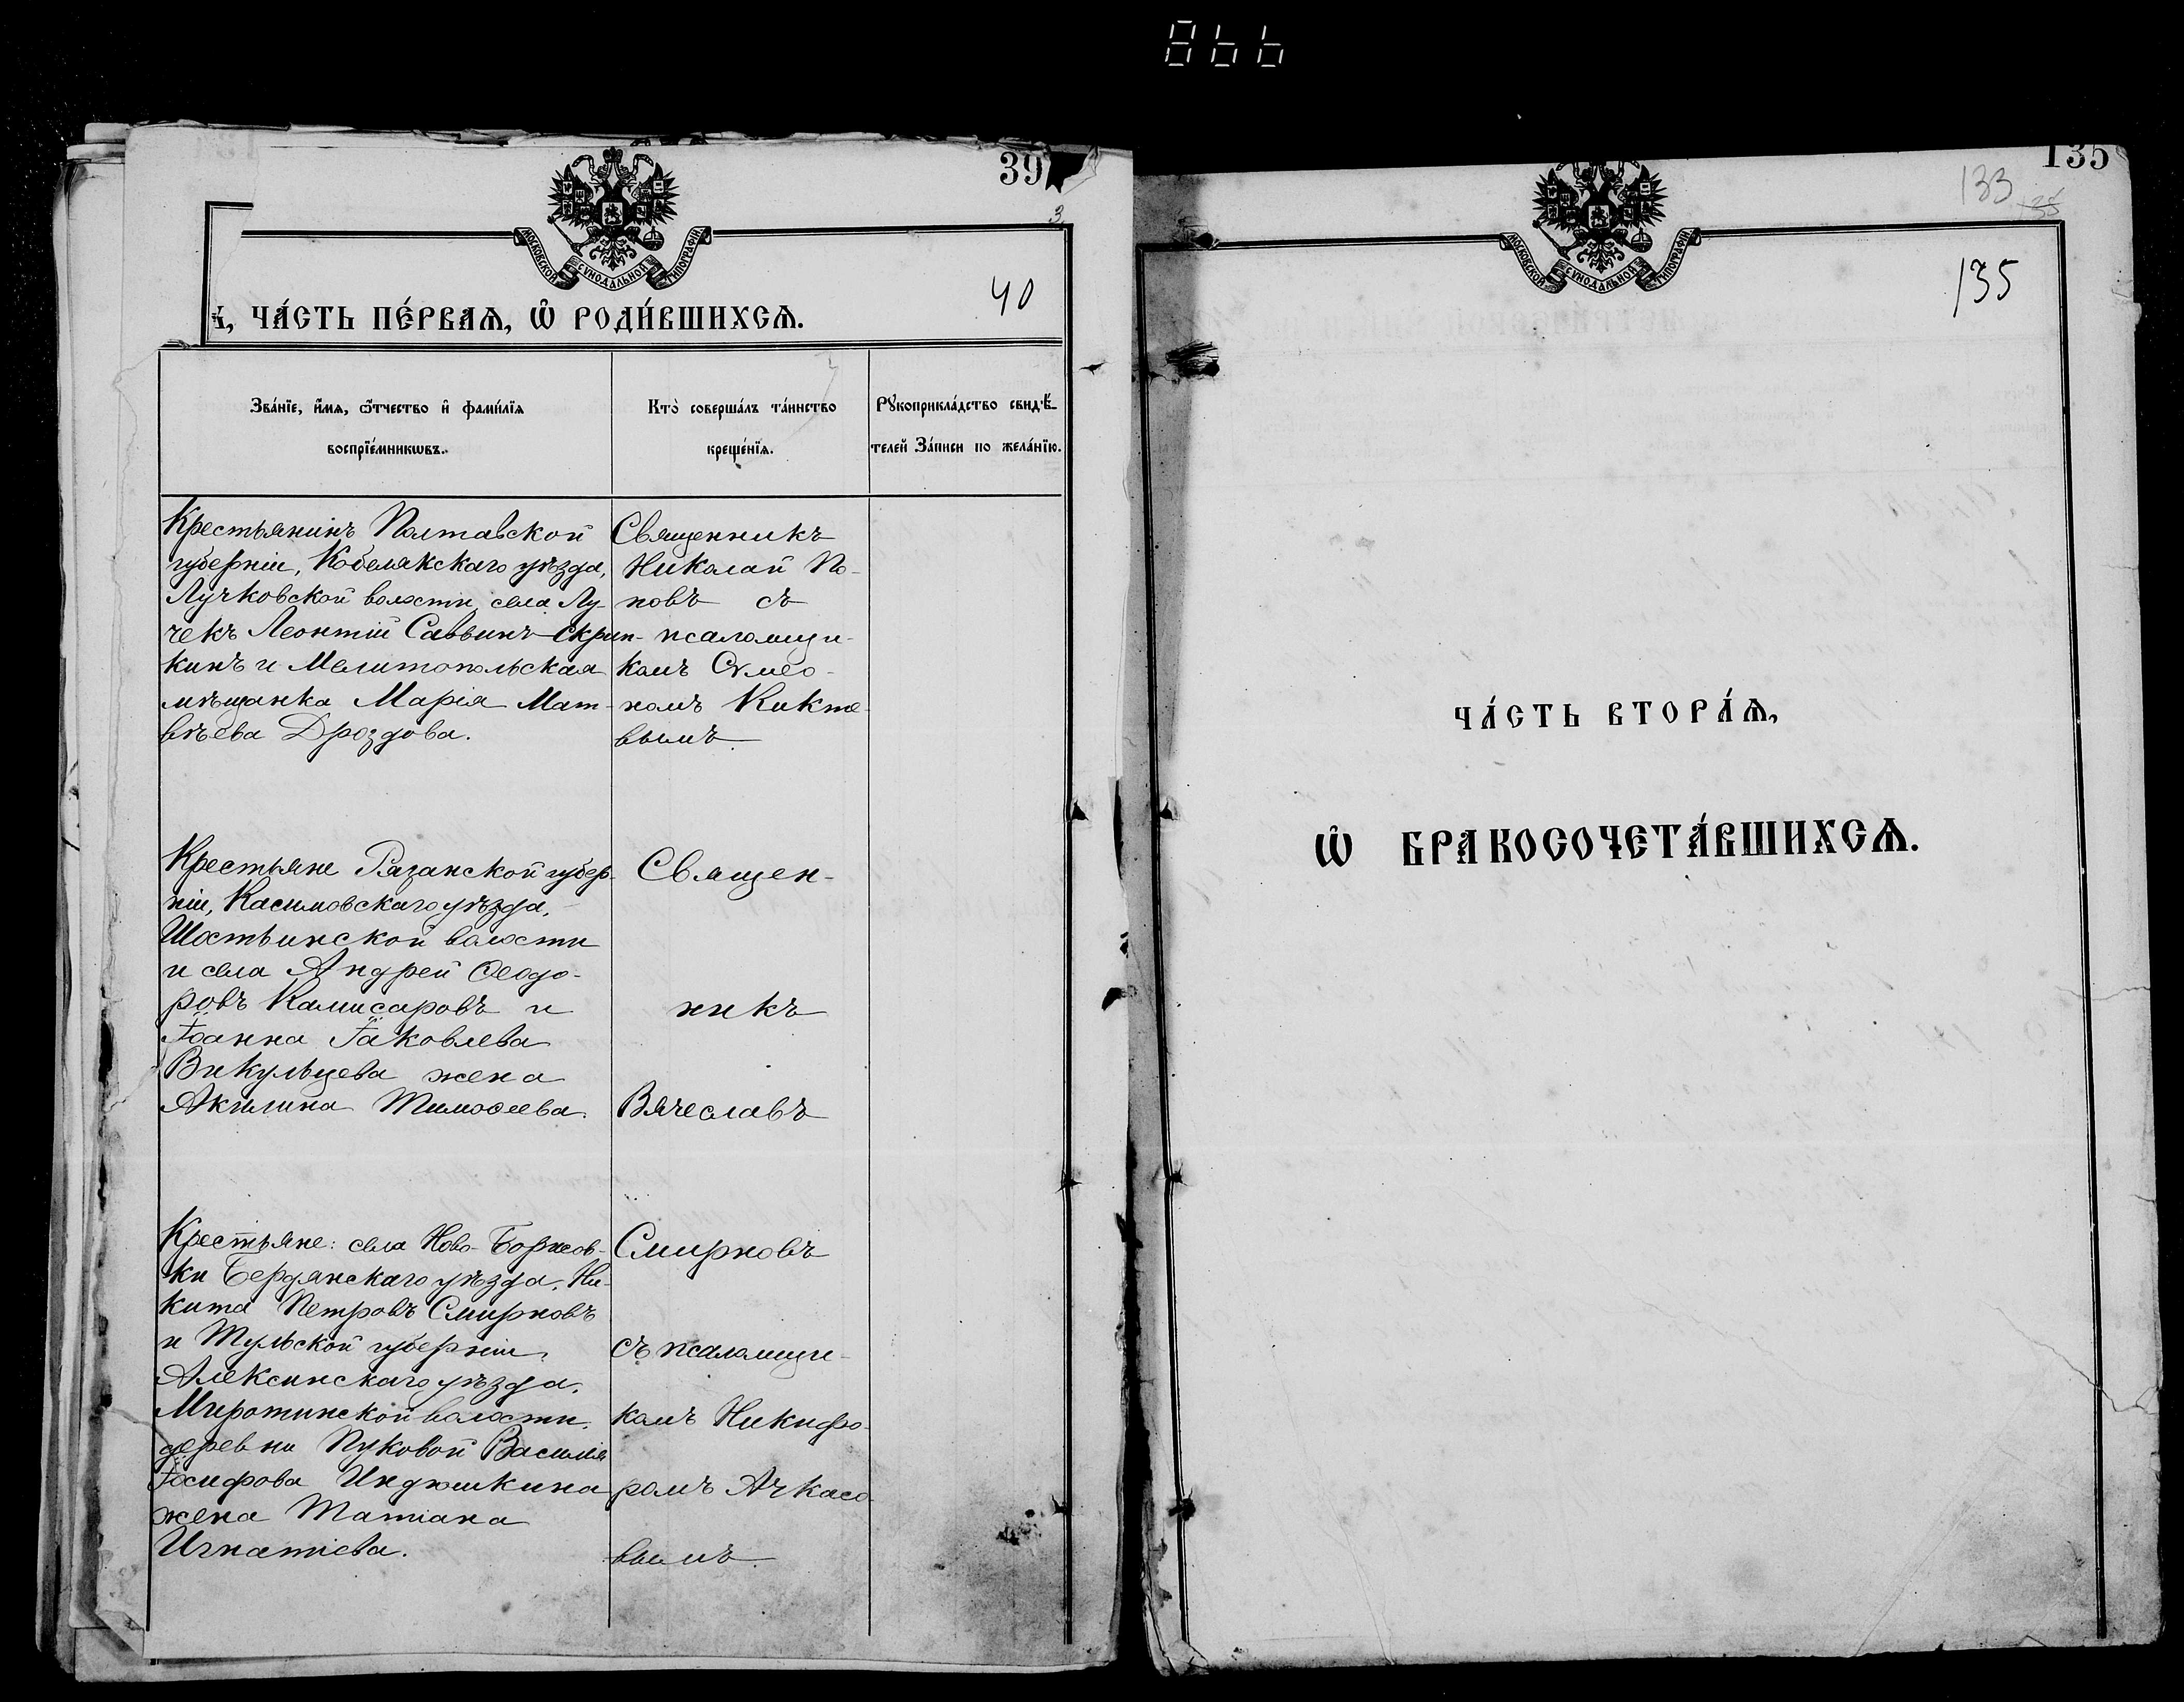 866
39
3
МОСКОВСКОЙ СѴНОДАЛЬНОЙ ТИПОГРАФІИ
40
, ЧА́СТЬ ПЕ́РВАѦ, Ѽ РОДИ́ВШИХСѦ.
Зва́нїе, и҆́мѧ, ѻ҆́тчество и҆ фами́лїѧ
воспрїе́мникѡвъ.
Кто̀ соверша́лъ та́инство
креще́нїѧ.
Рꙋкоприкла́дство свидѣ́-
телей За́писи по жела́нїю.
Крестьянинъ Полтавской
губерніи, Кобелякскаго уѣзда,
Лучковской волости, села Лу-
чекъ Леонтій Саввинъ Скрип-
кинъ и Мелитопольская
мѣщанка Марія Мат-
вѣева Дроздова.
Священникъ
Николай По-
повъ съ
псаломщи-
комъ Сѵмео-
номъ Кикте-
вымъ.
Крестьяне Рязанской губер-
ніи, Касимовскаго уѣзда,
Шостьинской волости
и села Андрей Ѳеодо-
ровъ Камисаровъ и
Іоанна Іаковлева
Викульцева жена
Акилина Тимоѳеева.
Священ-
никъ
Вячеславъ
Крестьяне: села Ново-Борисов-
ки Бердянскаго уѣзда, Ни-
кита Петровъ Смирновъ
и Тульской губерніи,
Алексинскаго уѣзда,
Миротинской волости,
деревни Пуковой Василія
Іосифова Индюшкина
жена Татіана
Игнатіева.
Смирновъ
съ псаломщи-
комъ Никифо-
ромъ Ачкасо-
вымъ.
135
133
135
МОСКОВСКОЙ СѴНОДАЛЬНОЙ ТИПОГРАФІИ
135
ЧА́СТЬ ВТОРА́Ѧ,
Ѽ БРАКОСОЧЕТА́ВШИХСѦ.